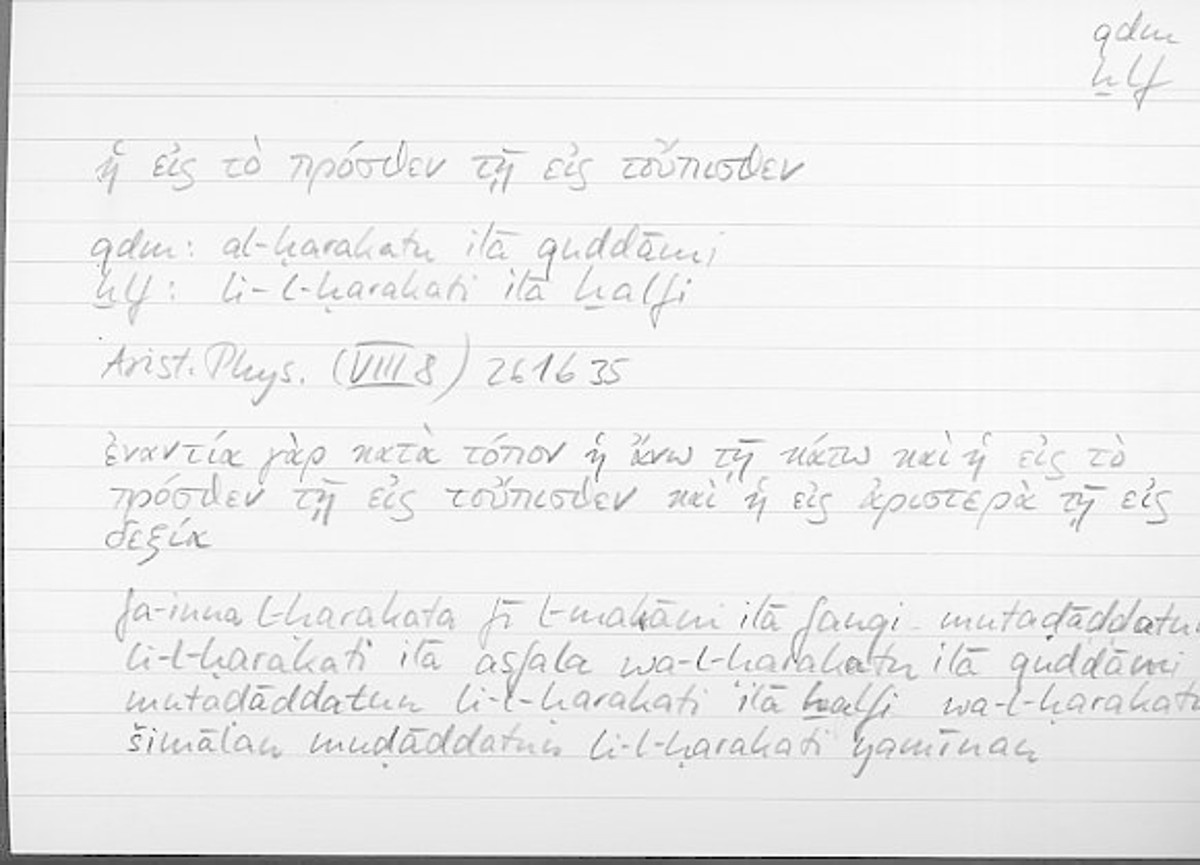 qdm
ḫlf
ἡ εἰς τὸ πρόσθεν τῇ εἰς τοὔπισθεν
qdm: al-ḥarakatu ilā quddāmi
ḫlf: li-l-ḥarakati ilā ḫalfi
Arist. Phys. (VIII 8) 261b35
ἐναντία γὰρ κατὰ τόπον ἡ ἄνω τῇ κάτω καὶ ἡ εἰς τὸ
πρόσθεν τῇ εἰς τοὔπισθεν καὶ ἡ εἰς ἀριστερὰ τῇ εἰς
δεξιά
fa-inna l-ḥarakata fī l-makāni ilā fauqi mutaḍāddatun
li-l-ḥarakati ilā asfala wa-l-ḥarakatu ilā quddāmi
mutaḍāddatun li-l-ḥarakati ilā ḫalfi wa-l-ḥarakatu
šimālan muḍāddatun li-l-ḥarakati yamīnan